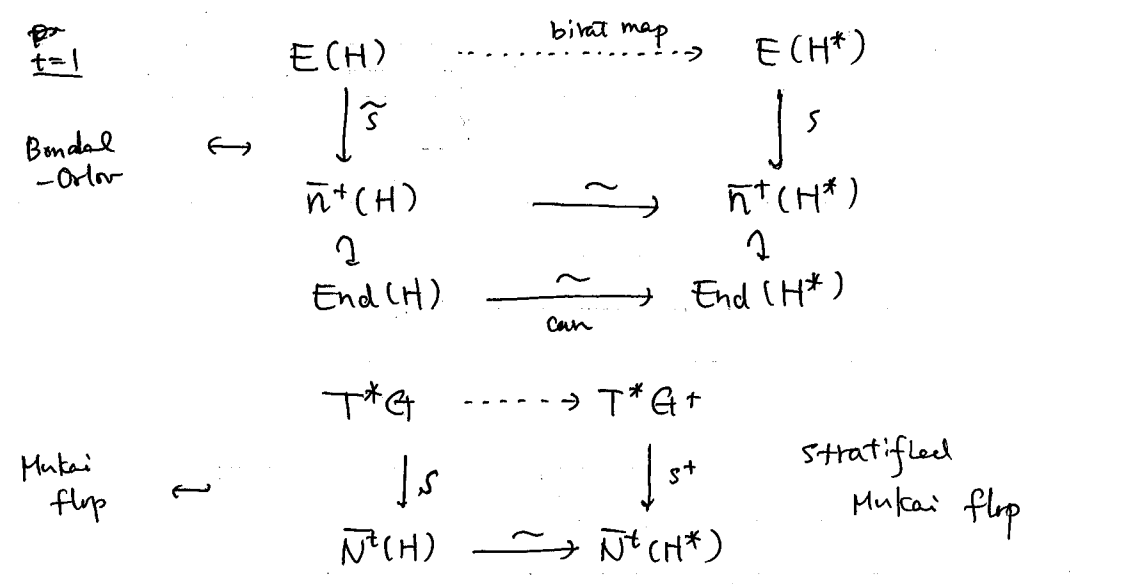 t=1
E(H) birat map E(H*)
s̃ s
Bondal
-Orlov
n̄⁺(H) ~ n̄⁺(H*)
End(H) ~ End(H*)
can
T*G T*G+
Mukai
flop
s s⁺
stratified
Mukai flop
N̄ᵗ(H) ~ N̄ᵗ(H*)